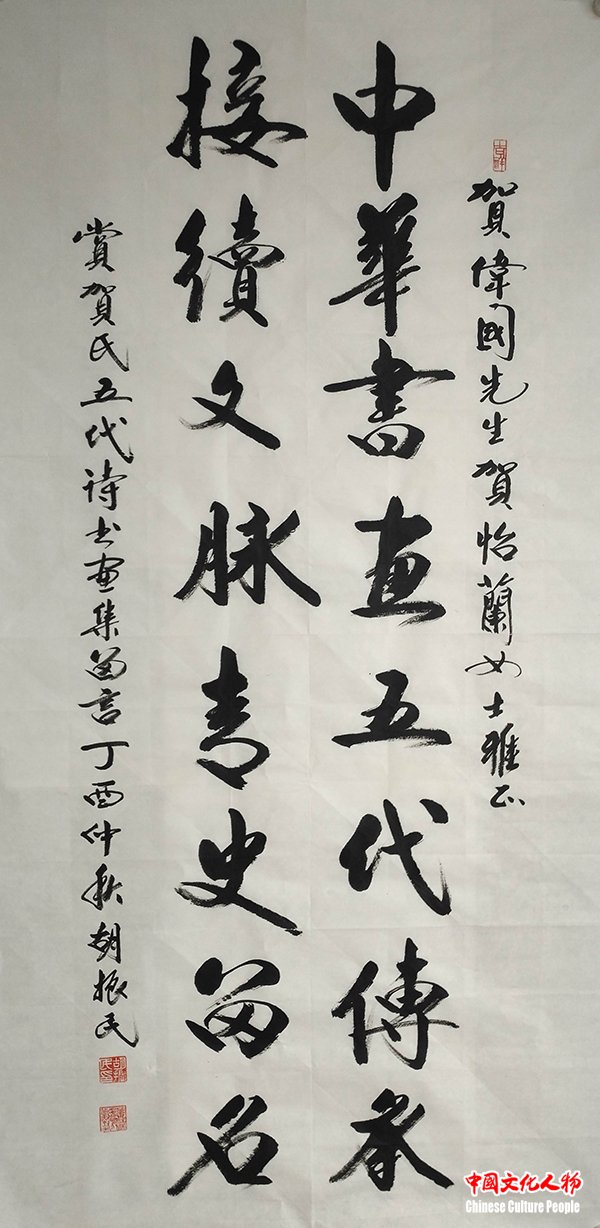 賀偉國先生賀怡蘭女士雅正
中華書画五代傳承
接續文脉青史留名
賞賀氏五代诗书画集留言丁酉仲秋胡振民
中國文化人物
Chinese Culture People